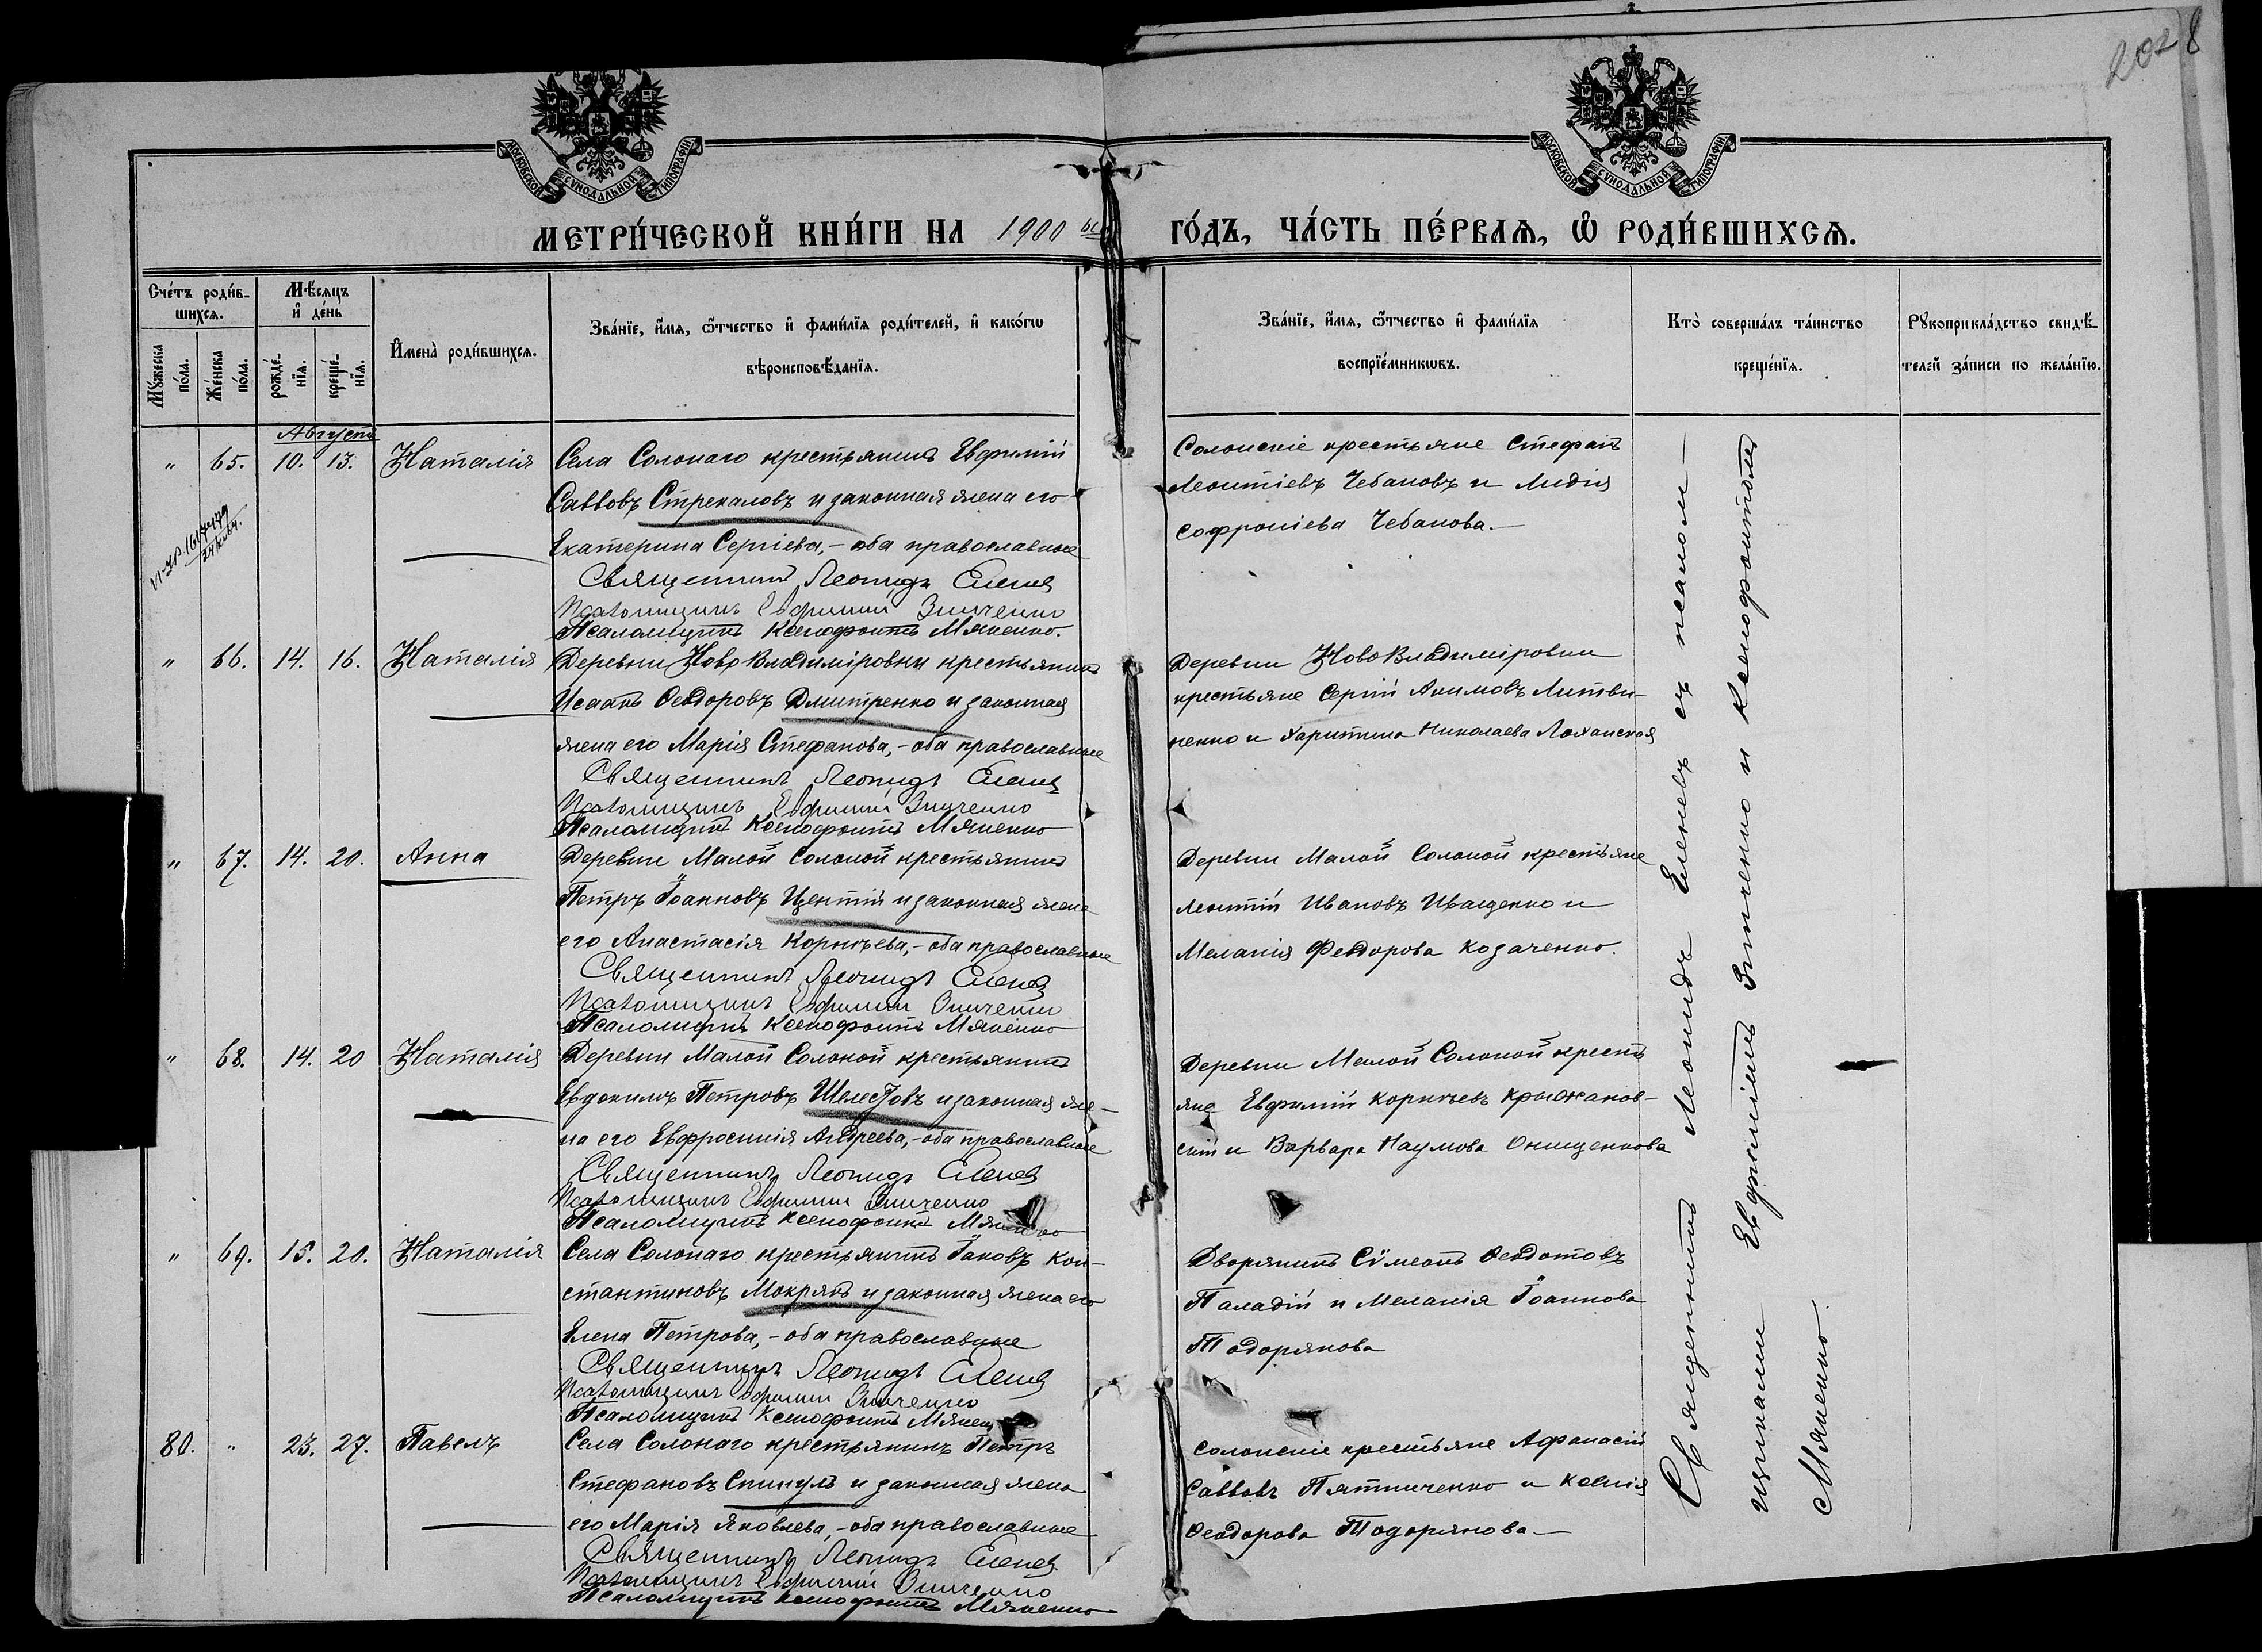 2028
МОСКОВСКОЙ СУНОДАЛЬНОЙ ТИПОГРАФІИ
МОСКОВСКОЙ СУНОДАЛЬНОЙ ТИПОГРАФІИ
МЕТРИ́ЧЕСКОЙ КНИ́ГИ НА 1900 ый
ГО́ДЪ, ЧА́СТЬ ПЕ́РВАѦ, Ѡ РОДИ́ВШИХСѦ.
Сче́тъ роди́в-
шихсѧ.
Мꙋжеска по́ла.
Же́нска по́ла.
Мѣ́сѧцъ и де́нь
рожде́-
нїѧ.
креще́-
нїѧ.
Имена̀ роди́вшихсѧ.
Зва́нїе, и́мѧ, ѻ́тчество и фами́лїѧ роди́телей, и како́гѡ
вѣроисповѣ́данїѧ.
Зва́нїе, и́мѧ, ѻ́тчество и фами́лїѧ
воспрїе́мникѡвъ.
Кто̀ соверша́лъ та́инство
креще́нїѧ.
Рꙋкоприкла́дство свидѣ́-
телей за́писи по жела́нїю.
Августъ
" 65. 10. 13. Наталія
Села Солонаго крестьянинъ Евфимій
Савовъ Стрекаловъ и законная жена его
Екатерина Сергіева, - оба православные
Священникъ Леонидъ Еленевъ
Псаломщикъ Евфимій Зинченко
Псаломщикъ Ксенофонтъ Мякенко.
Солонскіе крестьяне Стефанъ
Леонтіевъ Чебановъ и Лидія
Софроніева Чебанова.—
" 66. 14. 16. Наталія
Деревни НовоВладиміровки крестьянинъ
Исаакъ Ѳеодоровъ Дмитренко и законная
жена его Марія Стефанова, - оба православные
Священникъ Леонидъ Еленевъ
Псаломщикъ Евфимій Зинченко
Псаломщикъ Ксенофонтъ Мякенко
Деревни НовоВладиміровки
крестьяне Сергій Акимовъ Литви-
ненко и Харитина Николаева Лоханская
" 67. 14. 20. Анна
Деревни Малой Солоной крестьянинъ
Петръ Іоанновъ Ицентій и законная жена
его Анастасія Корнѣева, - оба православные
Священникъ Леонидъ Еленевъ
Псаломщикъ Евфимій Зинченко
Псаломщикъ Ксенофонтъ Мякенко
Деревни Малой Солоной крестьяне
Леонтій Ивановъ Иващенко и
Меланія Феодорова Козаченко.
" 68. 14. 20 Наталія
Деревни Малой Солоной крестьянинъ
Евдокимъ Петровъ Шелестовъ и законная же-
на его Евфросинія Андреева, - оба православные
Священникъ Леонидъ Еленевъ
Псаломщикъ Евфимій Зинченко
Псаломщикъ Ксенофонтъ Мякенко
Деревни Малой Солоной кресть
яне Евфимій Корнѣевъ Крыжанов-
скій и Варвара Наумова Онищенкова
" 69. 15. 20. Наталія
Села Солонаго крестьянинъ Іаковъ Кон-
стантиновъ Мокрякъ и законная жена его
Елена Петрова, - оба православные
Священникъ Леонидъ Еленевъ
Псаломщикъ Евфимій Зинченко
Псаломщикъ Ксенофонтъ Мякенко
Дворянинъ Сѵмеонъ Ѳеодотовъ
Паладій и Меланія Іоаннова
Тодорянова
80. " 23. 27. Павелъ
Села Солонаго крестьянинъ Петръ
Стефановъ Спинулъ и законная жена
его Марія Яковлева, - оба православные
Священникъ Леонидъ Еленевъ
Псаломщикъ Евфимій Зинченко
Псаломщикъ Ксенофонтъ Мякенко
Солонскіе крестьяне Афанасій
Савовъ Пятниченко и Ксенія
Ѳеодорова Тодорянова—
Священникъ Леонидъ Еленевъ съ псалом-
щиками Евфиміемъ Зинченко и Ксенофонтомъ
Мякенко.